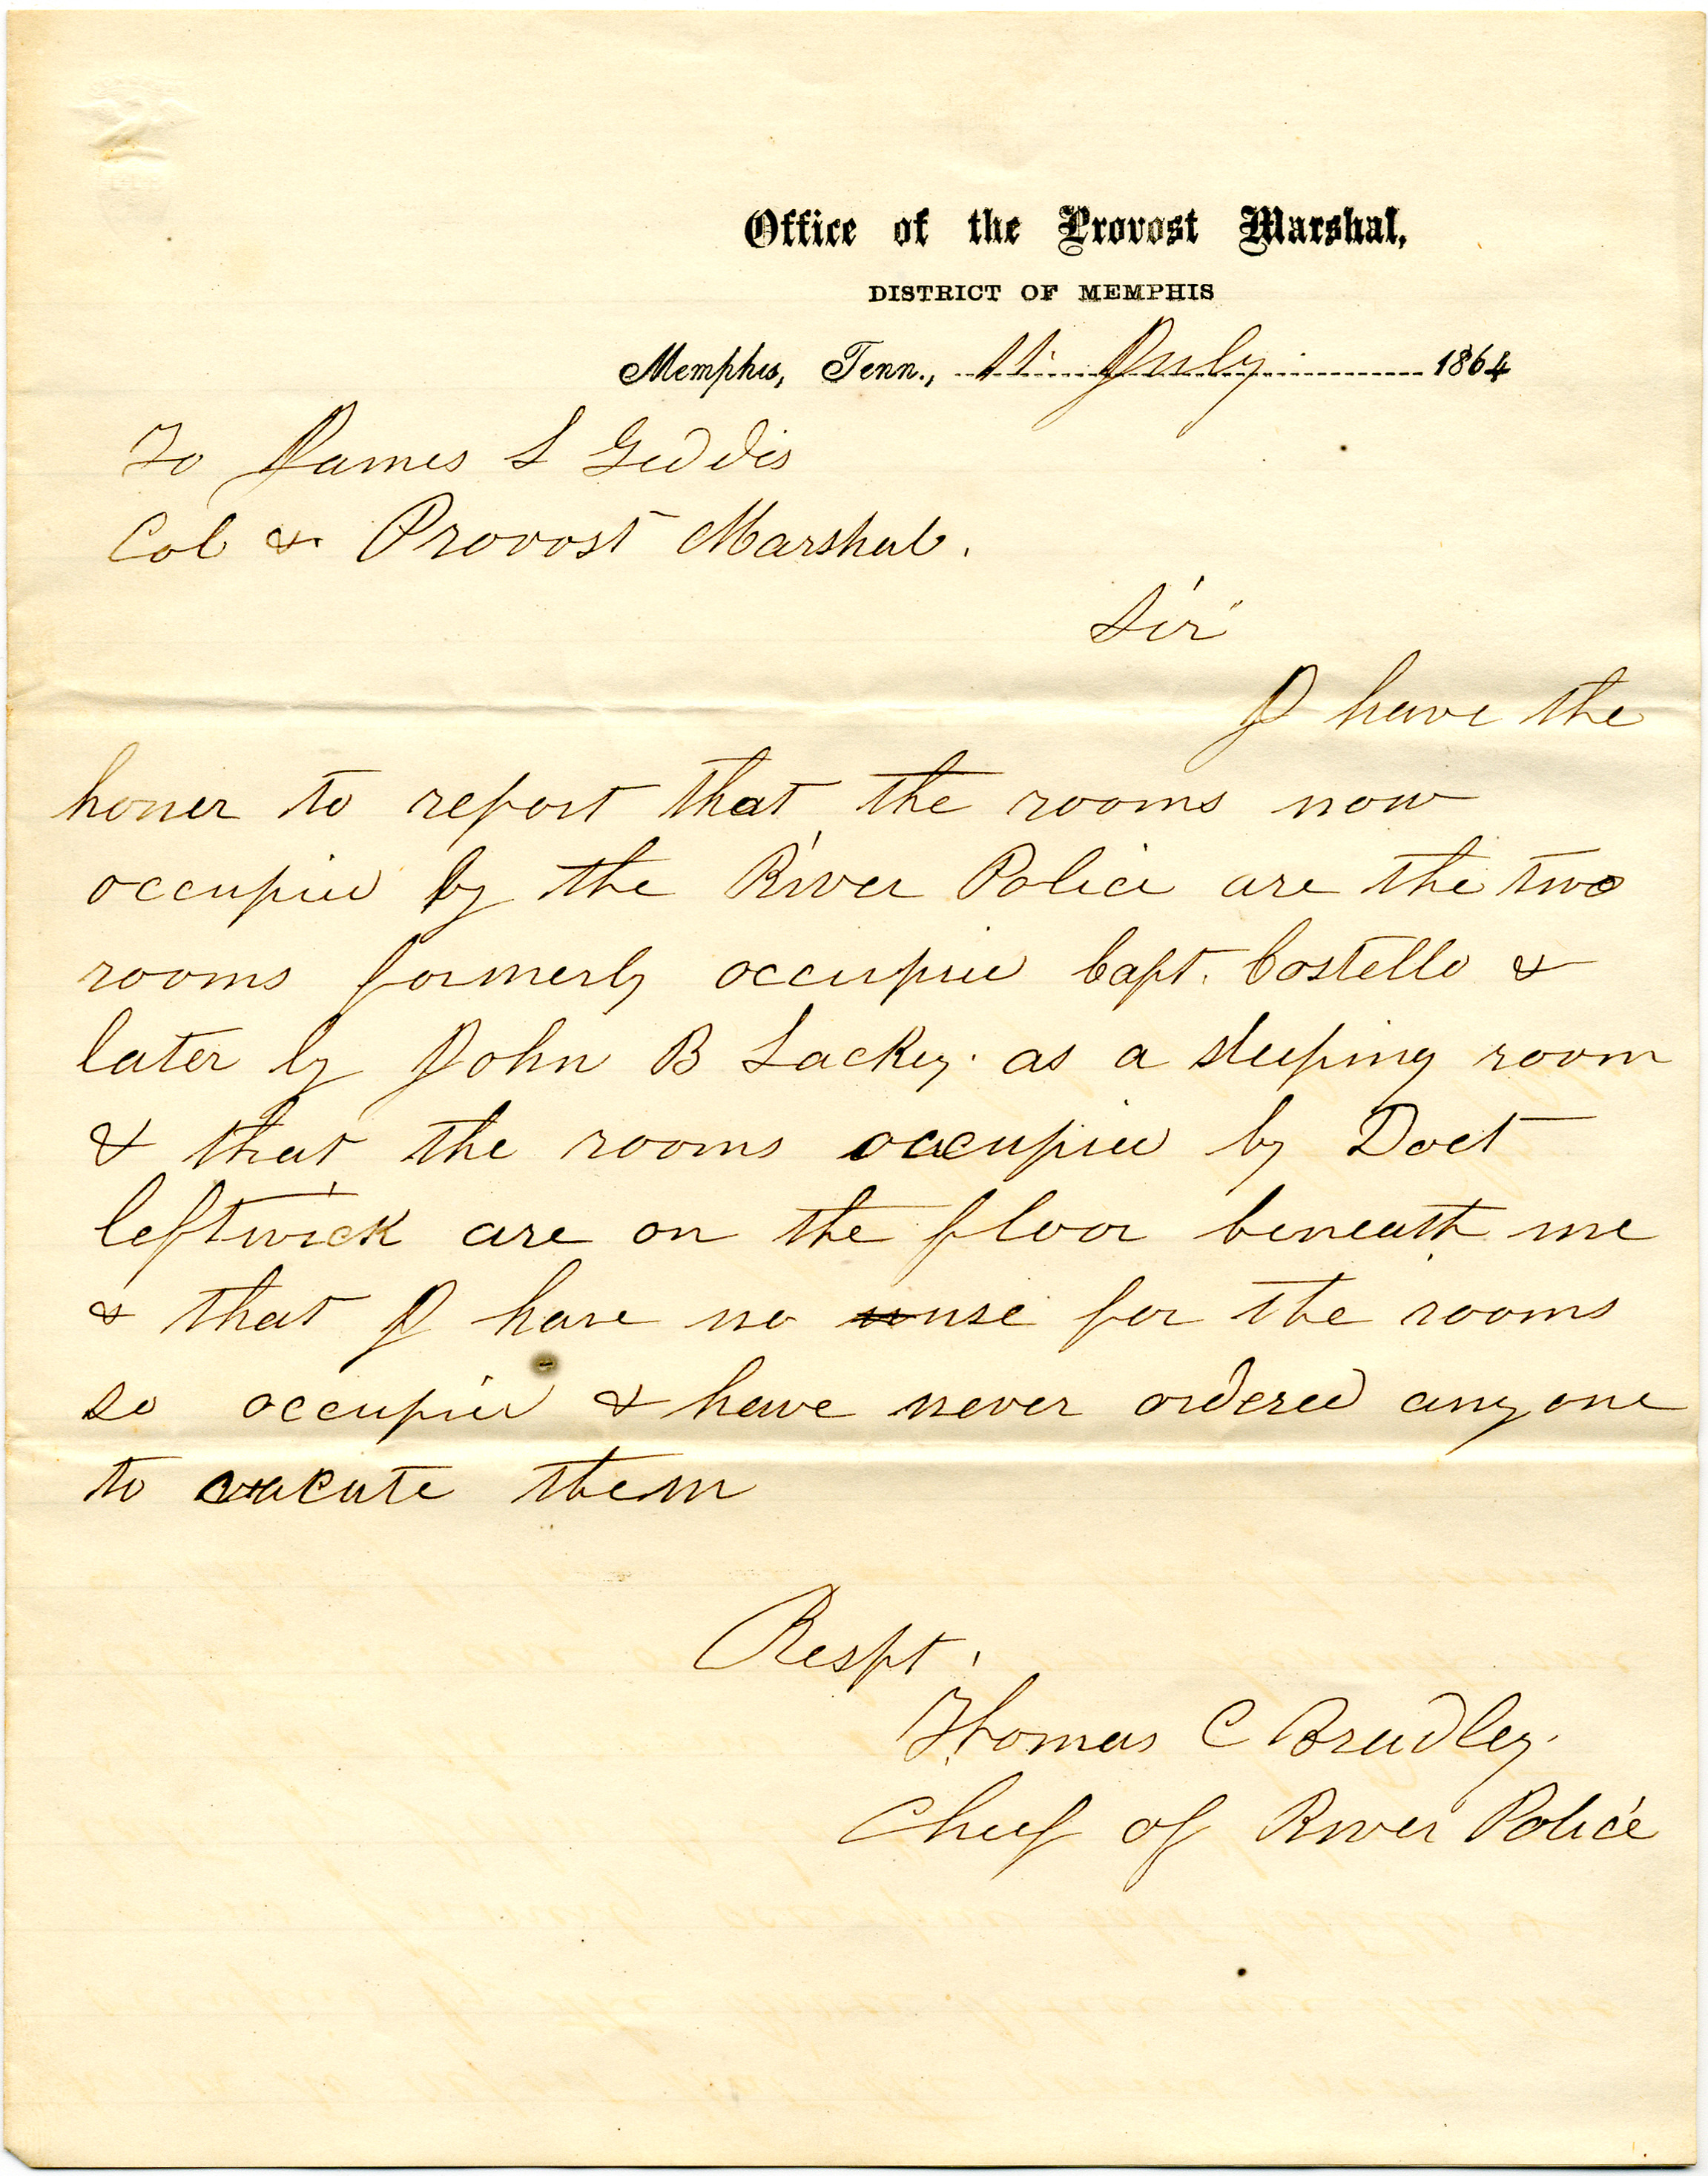 Office of the Provost Marshal,
DISTRICT OF MEMPHIS
Memphis, Tenn., 11 July 1864
To James L Geddis
Col & Provost Marshal.
Sir
I have the
honer to report that the rooms now
occupied by the River Police are the two
rooms formerly occupied Capt. Costello &
later by John B Lackey. as a sleeping room
& that the rooms occupied by Doct
leftwick are on the floor beneath me
& that I have no use for the rooms
so occupied & have never ordered any one
to vacate them
Respt.
Thomas C Bradley.
Chief of River Police